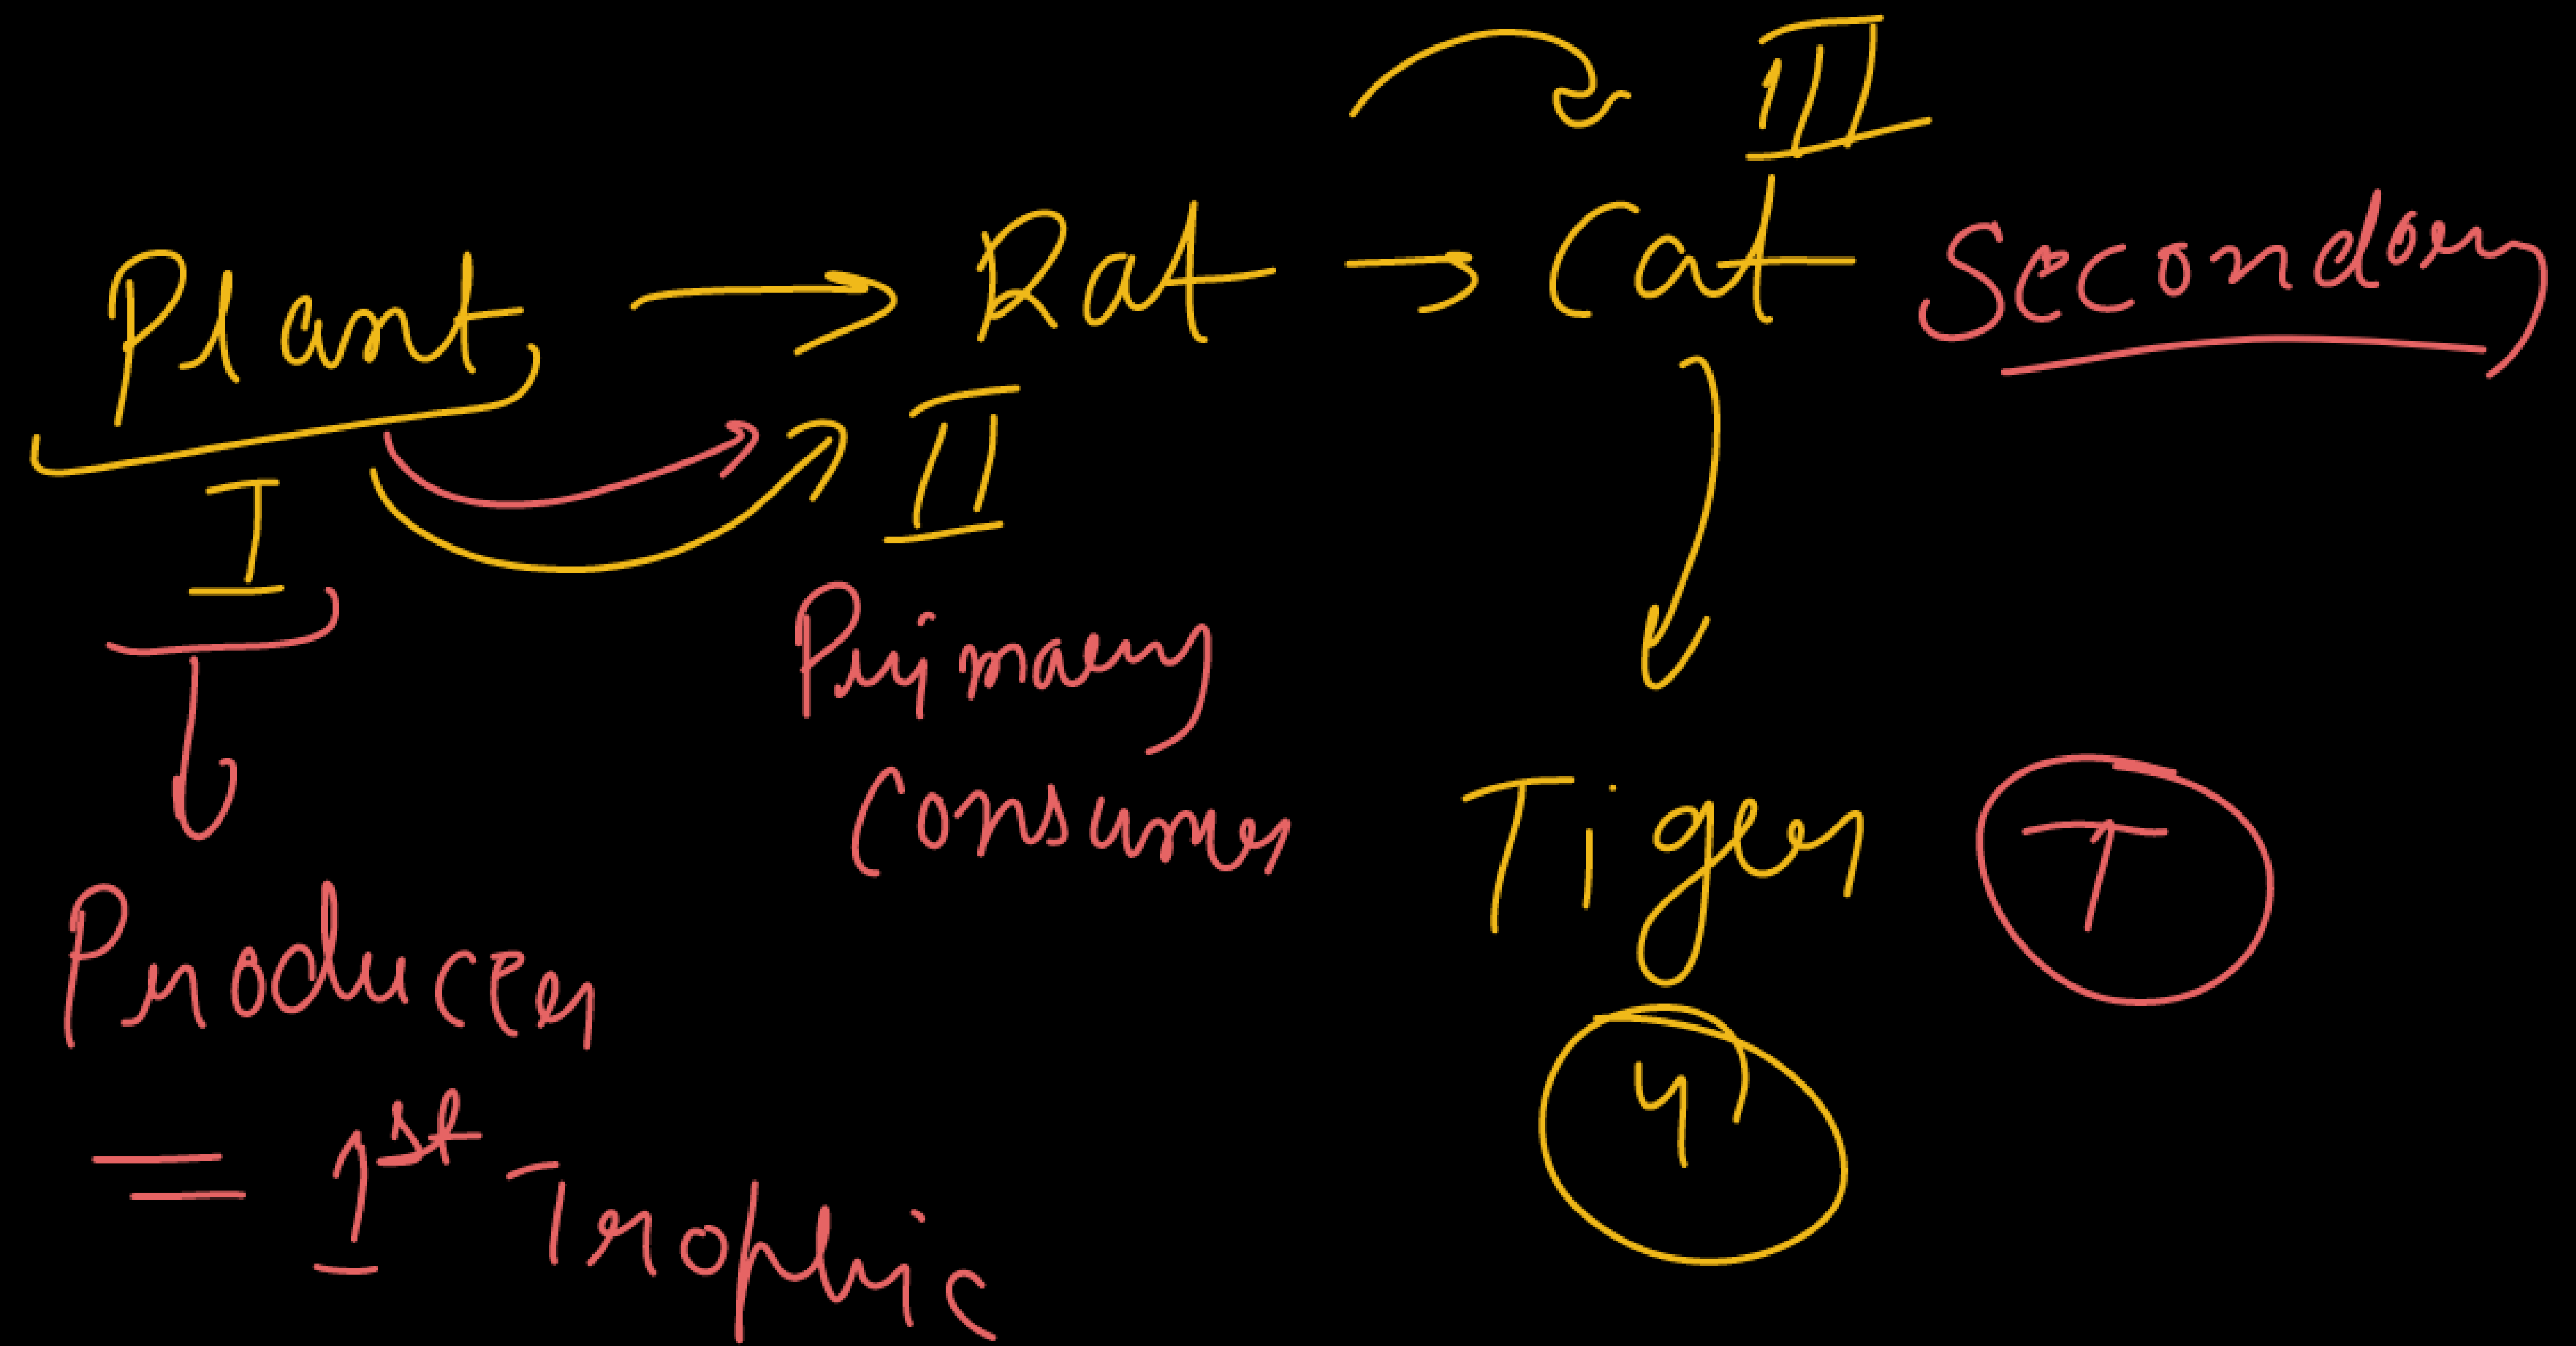 III
Plant → Rat → Cat Secondary
I II
Primary
Consumer
Tiger T
Producer
4
= 1st Trophic